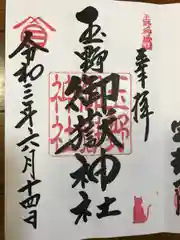 奉拝
玉野御嶽神社
令和三年六月十四日